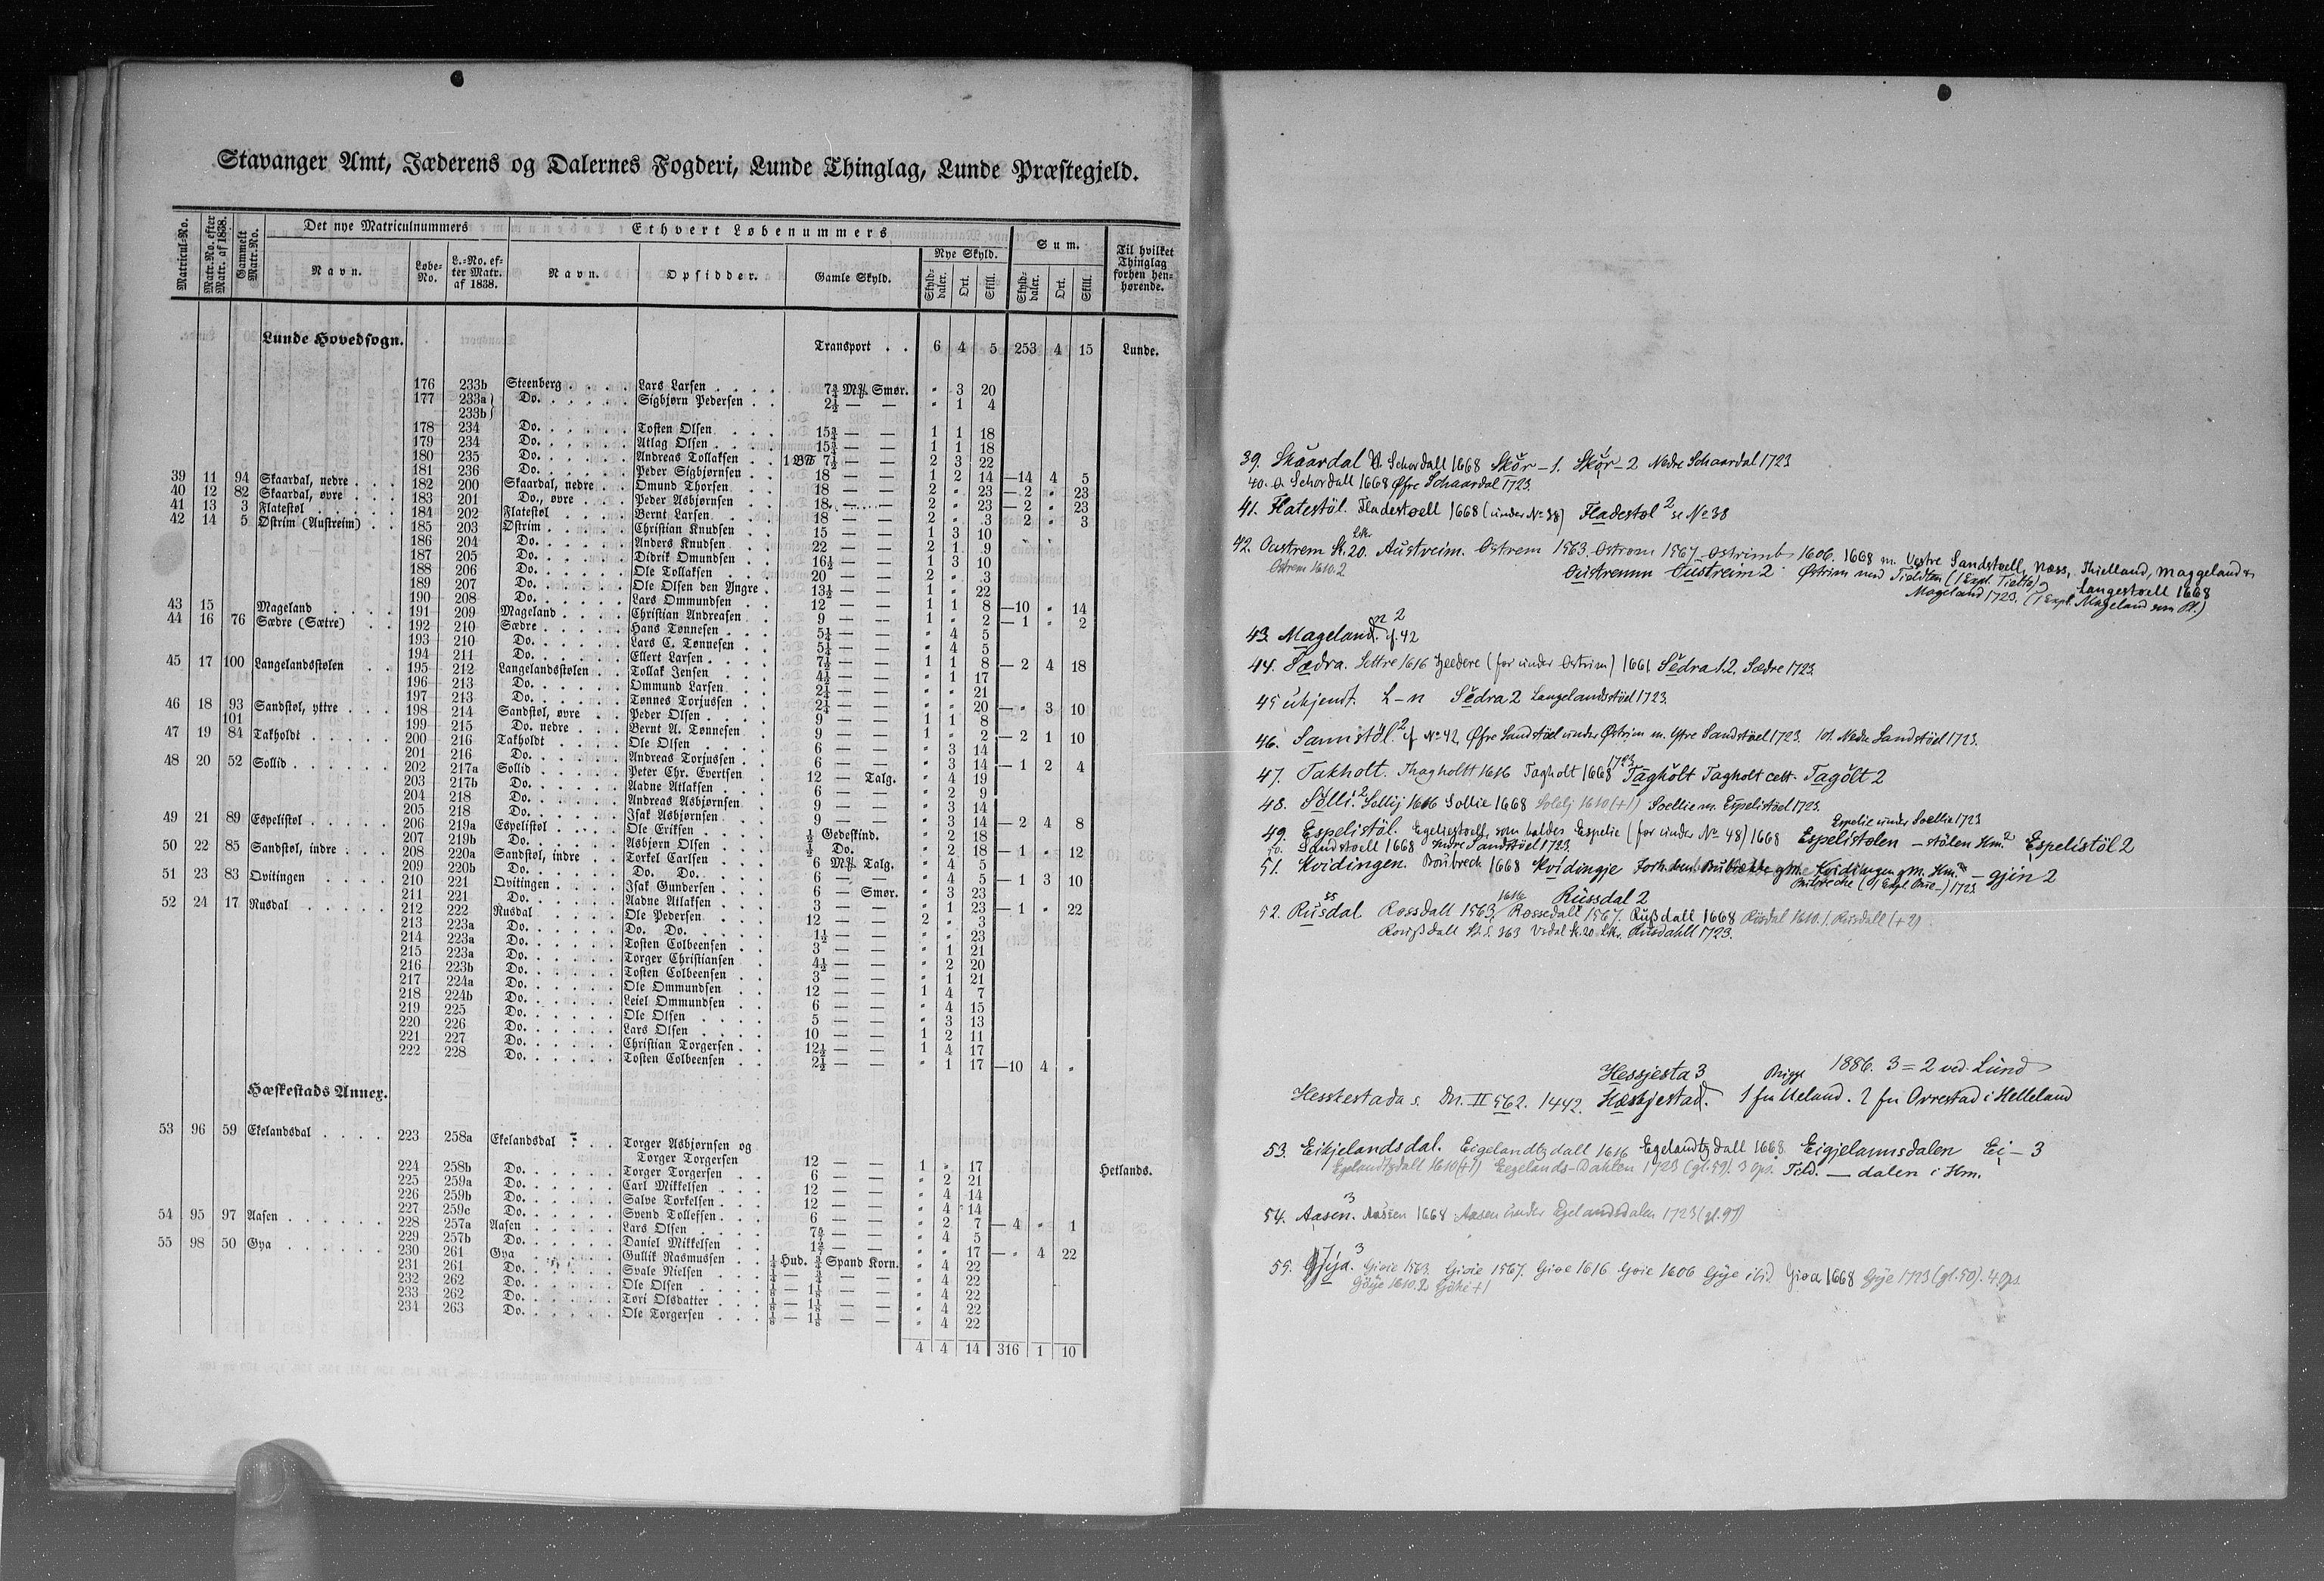 Stavanger Amt, Jæderens og Dalernes Fogderi, Lunde Thinglag, Lunde Præstegjeld.
Matricul-No. Matr.-No. efter Matr. af 1838. Gammelt Matr.-No. Det nye Matriculnummers Ethvert Løbenummers Sum. Til hvilket Thinglag forhen henhørende.
Navn. Løbe-No. L.-No. efter Matr. af 1838. Navn. Opsidder. Gamle Skyld. Nye Skyld. Skylddaler. Ort. Skill. Skylddaler. Ort. Skill.
Lunde Hovedsogn. Transport . . 6 4 5 253 4 15 Lunde.
176 233b Steenberg . . . . Lars Larsen . . . . 7¾ Mrk. Smør. " 3 20
177 233a 233b Do. . . . . . Sigbjørn Pedersen . . 2½ — — " 1 4
178 234 Do. . . . . . Tosten Olsen . . . 15¾ — — 1 1 18
179 234 Do. . . . . . Atlag Olsen . . . . 15¾ — — 1 1 18
180 235 Do. . . . . . Andreas Tollaksen . . 1 7½ — — 2 3 22
181 236 Do. . . . . . Peder Sigbjørnsen . . 18 — — 1 2 14 —14 4 5
39 11 94 Skaardal, nedre . . . 182 200 Skaardal, nedre . . Omund Thorsen . . 18 — — 2 " 23 — 2 " 23
40 12 82 Skaardal, øvre . . . 183 201 Do., øvre . . . Peder Asbjørnsen . . 18 — — 2 " 23 — 2 " 23
41 13 3 Flatestøl . . . . . 184 202 Flatestøl . . . . Bernt Larsen . . . 18 — — 2 " 3 2 " 3
42 14 5 Østrim (Austreim) . . 185 203 Østrim . . . . . Christian Knudsen . . 15 — — 1 3 10
186 204 Do. . . . . . Anders Knudsen . . 22 — — 2 1 9
187 205 Do. . . . . . Didrik Omundsen . . 16½ — — 1 3 10
188 206 Do. . . . . . Ole Tollaksen . . . 20 — — 2 " 3
189 207 Do. . . . . . Ole Olsen den Yngre . 13½ — — 1 " 22
190 208 Do. . . . . . Lars Ommundsen . . 12 — — 1 1 8 —10 " 14
43 15 Mageland . . . . 191 209 Mageland . . . . Christian Andreasen . 9 — — 1 " 2 — 1 " 2
44 16 76 Sædre (Sætre) . . 192 210 Sædre . . . . . Hans Tønnesen . . . 5¼ — — " 4 5
193 210 Do. . . . . . Lars C. Tønnesen . . 5¼ — — " 4 5
194 211 Do. . . . . . Ellert Larsen . . . . 7½ — — 1 1 8 — 2 4 18
45 17 100 Langelandsstølen . . 195 212 Langelandsstølen . . Tollak Jensen . . . 4½ — — " 1 17
196 213 Do. . . . . . Ommund Larsen . . 2¼ — — " " 21
197 213 Do. . . . . . Tønnes Torjussen . . 2¼ — — " " 20 — " 3 10
46 18 93 Sandstøl, yttre . . . 198 214 Sandstøl, øvre . . Peder Olsen . . . . 9 — — 1 1 8
101 199 215 Do. nedre . . . Bernt A. Tønnesen . 9 — — 1 " 2 — 2 1 10
47 19 84 Takholdt . . . . . 200 216 Takholdt . . . . Ole Olsen . . . . 6 — — " 3 14
201 216 Do. . . . . . Andreas Torjussen . . 6 — — " 3 14 — 1 2 4
48 20 52 Sollid . . . . . . 202 217a Sollid . . . . . Peter Chr. Evertsen . 12 — Talg. " 4 19
203 217b Do. . . . . . Aadne Atlaksen . . . 6 — — " 2 9
204 218 Do. . . . . . Andreas Asbjørnsen . 9 — — " 3 14
205 218 Do. . . . . . Isak Asbjørnsen . . 9 — — " 3 14 — 2 4 8
49 21 89 Espelistøl . . . . . 206 219a Espelistøl . . . . Ole Eriksen . . . . ½ Gedeskind. " 2 18
207 219b Do. . . . . . Asbjørn Olsen . . . ½ Do. " 2 18 — 1 " 12
50 22 85 Sandstøl, indre . . . 208 220a Sandstøl, indre . . Torkel Carlsen . . . 6 Mrk. Talg. " 4 5
209 220b Do. . . . . . Do. Do. . . . . 6 — — " 4 5 — 1 3 10
51 23 83 Qvitingen . . . . 210 221 Qvitingen . . . . Isak Gundersen . . . 6 — Smør. " 3 23
211 221 Do. . . . . . Aadne Atlaksen . . . 3 — — " 1 23 — 1 " 22
52 24 17 Rusdal . . . . . 212 222 Rusdal . . . . . Ole Pedersen . . . 12 — — 2 " 3
213 223a Do. . . . . . Do. Do. . . . . 1½ — — " " 23
214 223a Do. . . . . . Tosten Colbeensen . . 3 — — " 1 21
215 223a Do. . . . . . Torger Christiansen . 4½ — — " 2 20
216 223b Do. . . . . . Tosten Colbeensen . . 3 — — " 1 21
217 224a Do. . . . . . Ole Ommundsen . . 12 — — 1 4 7
218 224b Do. . . . . . Leiel Ommundsen . . 6 — — " 4 15
219 225 Do. . . . . . Ole Olsen . . . . 5 — — " 3 13
220 226 Do. . . . . . Lars Olsen . . . . 10 — — 1 2 11
221 227 Do. . . . . . Christian Torgersen . . 12½ — — 1 4 17
222 228 Do. . . . . . Tosten Colbeensen . . 2½ — — " 1 17 —10 4 "
Hæskestads Annex.
53 96 59 Ekelandsdal . . . . 223 258a Ekelandsdal . . . Torger Asbjørnsen og
Torger Torgersen 12 — — 1 " 17 Hetlands.
224 258b Do. . . . . . Torger Torgersen . . 6 — — " 2 21
225 259a Do. . . . . . Carl Mikkelsen . . . 12 — — " 4 14
226 259b Do. . . . . . Salve Torkelsen . . . 12 — — " 4 14
227 259c Do. . . . . . Svend Tollefsen . . . 6 — — " 2 7 — 4 " 1
54 95 97 Aasen . . . . . . 228 257a Aasen . . . . . Lars Olsen . . . . — — " 4 5
229 257b Do. . . . . . Daniel Mikkelsen . . — — " " 17 — " 4 22
55 98 50 Gya . . . . . . 230 261 Gya . . . . . Gullik Rasmussen . . ¼ Hud. ¾ Spand Korn. " 4 22
231 261 Do. . . . . . Svale Nielsen . . . ¼ — ¾ — — " 4 22
232 262 Do. . . . . . Ole Olsen . . . . ⅛ — 1⅛ — — " 4 22
233 262 Do. . . . . . Tori Olsdatter . . . ⅛ — 1⅛ — — " 4 22
234 263 Do. . . . . . Ole Torgersen . . . ⅛ — 1⅛ — — " 4 22
4 4 14 316 1 10
39. Skaardal Schordall 1668 Skör – 1. Skör – 2 Nedre Schaardal 1723
40. Schordall 1668 Øfre Schaardal 1723.
41. Flatestöl. Fladestoell 1668 (under No 38) Fladestøl 2 se No 38
42. Oustrem St. 20. Austreim. Ostrem 1563. Ostrom 1567 Ostrimb 1606. 1668 m. Vestre Sandstoell, Næss, Thielland, Maggeland &
Ostrem 1610.2 Oustremm Oustreim 2 Østrim med Tieldten (1 Expl. Tielte) Langestoell 1668
Mageland 1723. (1 Expl. Mageland som Pl.)
43. Mageland. n 2 cf. 42
44. Sædra. Settre 1616 Zeedere (for under Ostrim) 1661 Sedra 1.2. Sædre 1723.
45 ukjendt. L – n Sedra 2 Langelandsstöel 1723.
46. Sannstöl. 2 cf No 42, Øfre Sandstöel under Østrim m. Yttre Sandstøel 1723. 101. Nedre Sandstöel 1723.
47. Takholt. Thagholtt 1616 Tagholt 1668 1723 Tagholt Tagholt cett. Tagölt 2
48. Sölli. 2 Sollij 1606 Sollie 1668 1610 (+1) Soellie m. Espelistöel 1723.
49. Espelistöl. Egeliestoell, som kaldes Espelie (for under No 48) 1668 Espelie under Soellie 1723 Espelistolen – stölen Hm. 2 Espelistöl 2
50. Sandstoell 1668 Indre Sandstöel 1723.
51. Kvidingen. Broubrech 1668 Kvidingje Kvidingen gM. Hm. – gjin 2
(1 Expl. ) 1723
52. Rusdal Rossdall 1563, 1616 Rossedall 1567. Rüssdal 2 Rußdall 1668 Rüsdal 1610.1 Rusdall (+2)
Rousdall St. S. 363 St. 20. Rusdahll 1723.
Hessjesta 3 Brigge 1886. 3 = 2 ved Lund
Hesskestada s. Dn. II 562. 1442. Heskjestad. 1 fra Ueland. 2 fra Orrestad i Helleland
53. Eikjelandsdal. Eigelandtzdall 1616 Egelandtzdall 1668. Eigjelannsdalen Ei – 3
Egelandtzdall 1610 (+1) Egelands-Dahlen 1723 (gl. 59). 3 Ops. Tild. — dalen i Hm.
54. Aasen. 3 Aassen 1668 Aasen under Egelandsdalen 1723 (gl. 97)
55. Gjya. 3 Gioie 1563. Gioie 1567. Gioe 1616 Goie 1606 Gøye ibid. Giøa 1668 Gøye 1723 (gl. 50). 4 Ops
Göye 1610.2 +1